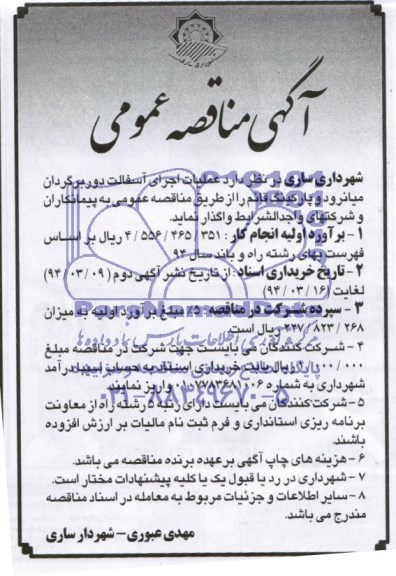 شهرداری ساری
آگهی مناقصه عمومی
شهرداری ساری در نظر دارد عملیات اجرای آسفالت دور برگردان
میانرود و پارکینگ قائم را از طریق مناقصه عمومی به پیمانکاران
و شرکتهای واجدالشرایط واگذار نماید.
۱- برآورد اولیه انجام کار : ۳۵۱/ ۴۶۵/ ۵۵۶/ ۴ ریال بر اساس
فهرست بهای رشته راه و باند سال ۹۴
۲- تاریخ خریداری اسناد : از تاریخ نشر آگهی دوم ( ۰۹/ ۰۳/ ۹۴)
لغایت (۱۶/ ۰۳/ ۹۴)
۳- سپرده شرکت در مناقصه: ۵٪ مبلغ برآورد اولیه به میزان
۲۶۸/ ۸۲۳/ ۲۴۷ ریال است.
۴- شرکت کنندگان می بایست جهت شرکت در مناقصه مبلغ
ریال بابت خریداری اسناد به حساب درآمد
شهرداری به شماره واریز نمایند.
۵- شرکت کنندگان می بایست دارای رتبه ۵ رشته راه از معاونت
برنامه ریزی استانداری و فرم ثبت نام مالیات بر ارزش افزوده
باشند
۶- هزینه های چاپ آگهی بر عهده برنده مناقصه می باشد.
۷- شهرداری در رد یا قبول یک یا کلیه پیشنهادات مختار است.
۸- سایر اطلاعات و جزئیات مربوط به معامله در اسناد مناقصه
مندرج می باشد.
مهدی عبوری – شهردار ساری
ParsNamadData
۰۲۱-۸۸۳۴۹۶۷۰-۵